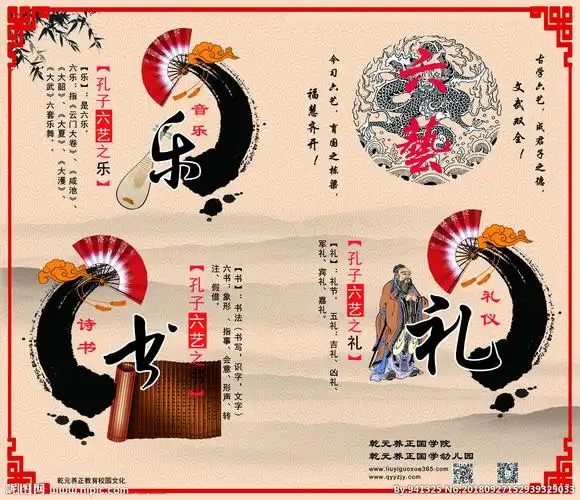 【孔子六艺之乐】
【乐】：是六乐。
六乐：指《云门大卷》《咸池》、
《大韶》、《大夏》、《大濩》、
《大武》六套乐舞。
音乐
乐
六藝
古学六艺，成君子之德，
文武双全！
今习六艺，育国之栋梁，
福慧齐开！
诗书
书
【孔子六艺之书】
【书】：书法（书写，识字，文字）
六书：象形、指事、会意、形声、转
注、假借。
【孔子六艺之礼】
【礼】：礼节。五礼：吉礼、凶礼、
军礼、宾礼、嘉礼。
礼仪
礼
乾元养正国学院
乾元养正国学幼儿园
www.liuyiguoxue365.com
www.qyyzjy.com
乾元养正教育校园文化
昵图网 www.nipic.com
By:941325 No:20180927152939329033